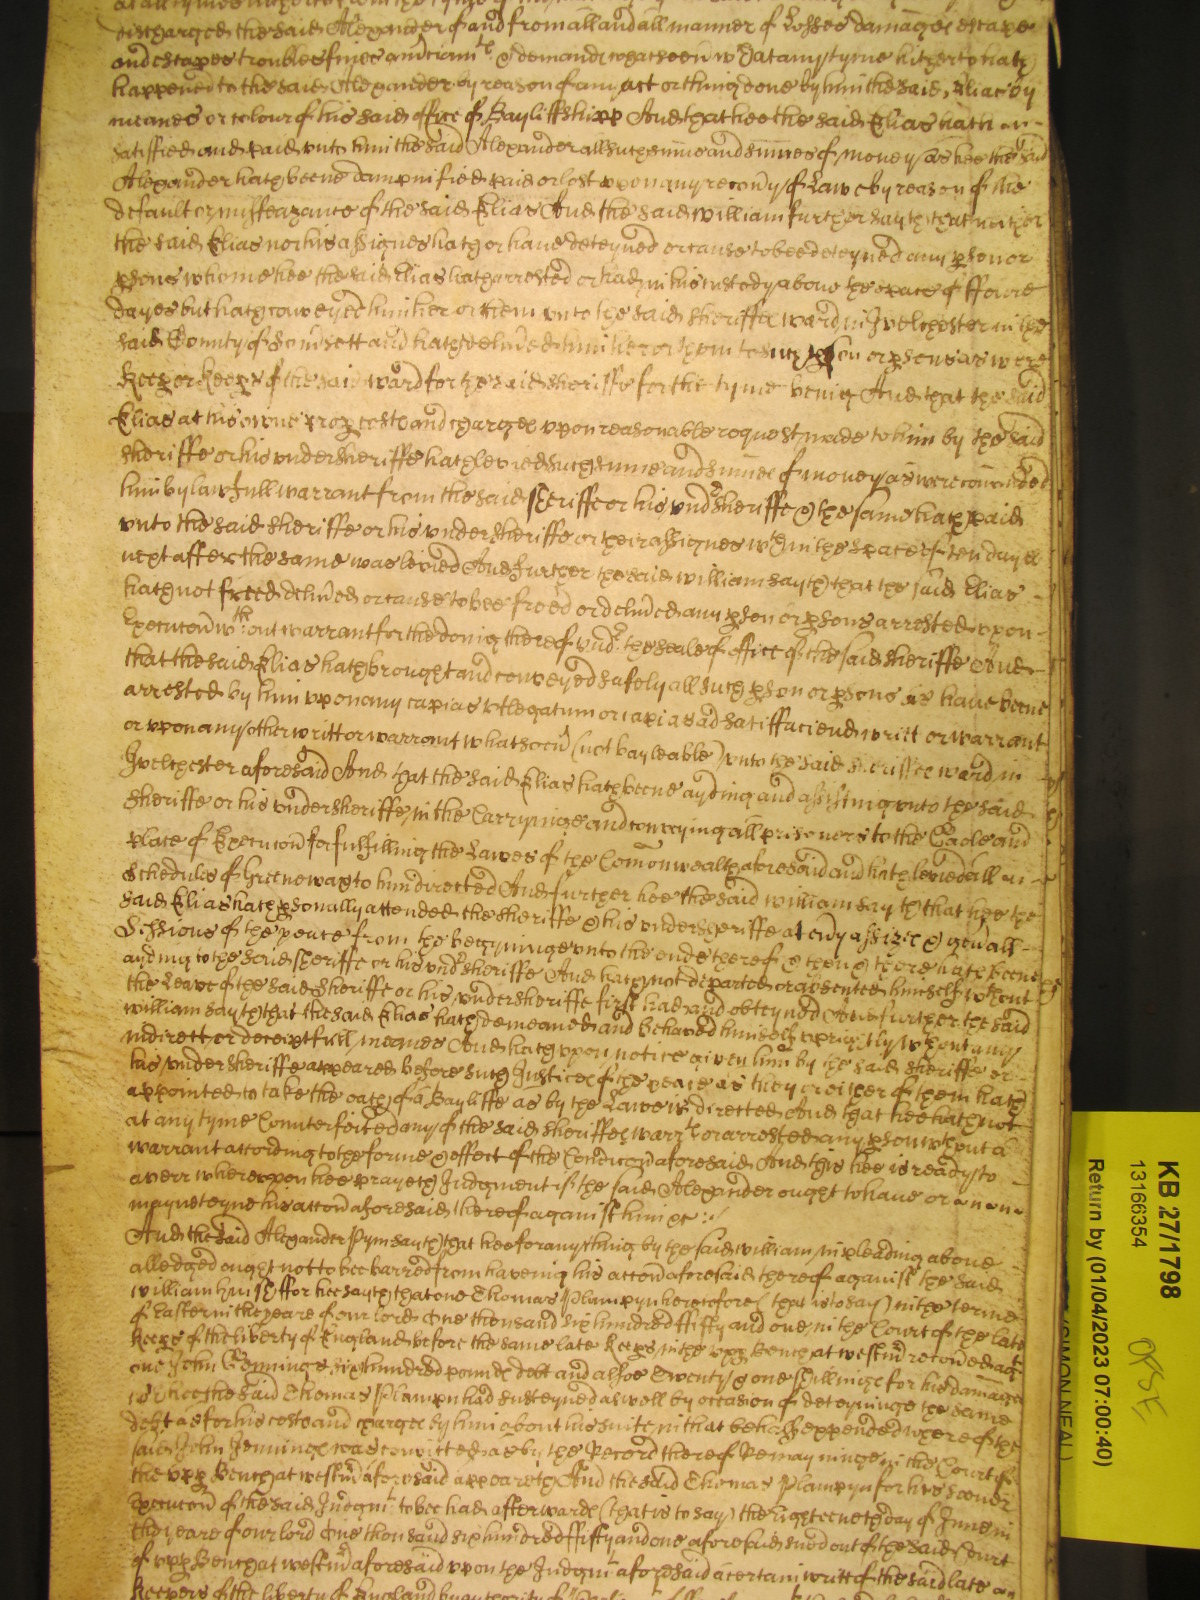 discharged the said Alexander of and from all and all manner of Losses damages escape
and escapes troubles fines and demands whatsoever wch at any tyme hitherto hath
happened to the said Alexander by reason of any act or thing done by him the said Elias by
meanes or colour of his said office of Bayliffshipp And that hee the said Elias hath
satisfied and paid unto him the said Alexander all such summe and summes of money as hee the said
Alexander hath beene dampnified paid or lost upon any recovy of Lawe by reason of the
default or misfeazance of the said Elias And the said William further sayth that neither
the said Elias nor his assignes hath or have deteyned or cause to bee deteyned any pson or
psons whome hee the said Elias hath arrested or had in his custody above the space of ffoure
dayes but hath conveyed him her or them unto the said sheriffes ward in Ivelchester in the
said County of Somsett and hath delived him her or them to such pson or psons as were
Keeper or keeps of the said ward for the said sheriffe for the tyme being And that the said
Elias at his owne prop costs and charges upon reasonable request made to him by the said
sheriffe or his undersheriffe hath levied such summe and summes of money as were comanded
him by lawfull warrant from the said sheriffe or his undsheriffe & the same hath paid
unto the said sheriffe or his undersheriffe or their assignes wthin the space of ten dayes
next after the same was levied And further the said William sayth that the said Elias
hath not freed delived or cause to bee freed or delived any pson or psons arrested upon
Execucon wthout warrant for the doing thereof und the seale of office of the said sheriffe And
that the said Elias hath brought and conveyed safely all such pson or psons as have beene
arrested by him upon any capias utlegatum or capias ad satisfaciend writt or warrant
or upon any other writt or warrant whatsoev (not bayleable) unto the said sheriffes ward in
Ivelchester aforesaid And that the said Elias hath beene ayding and assisting unto the said
sheriffe or his undersheriffe in the Carryinge and conveying all prisoners to the Gaole and
place of Execucon for fulfilling the Lawes of the Comonwealth aforesaid and hath levied all
Schedules of Greenewax to him directed And further hee the said William sayth that hee the
said Elias hath psonally attended the sheriffe & his undersheriffe at evy assizes & genall
Sessions of the peace from the begynninge unto the ende thereof & then & there hath beene
ayding to the said sheriffe or his undsheriffe And hath not departed or absented himself wthout
the Leave of the said sheriffe or his undersheriffe first had and obteyned And further the said
William sayth that the said Elias hath demeaned and behaved himself uprightly wthout any
indirect or deceiptfull meanes And hath upon notice given him by the said sheriffe or
his undersheriffe appeared before such Justices of the peace as they or either of them hath
appointed to take the oath of a Bayliffe as by the Lawe is directed And that hee hath not
at any tyme Counterfeited any of the said sheriffes warrts or arrested any pson wthout a
warrant according to the forme & effect of the Condicon aforesaid And this hee is ready to
averr whereupon hee prayeth Judgment if the said Alexander ought to have or
mayneteyne his accon aforesaid thereof against him &c
And the said Alexander Pym sayth that hee for any thing by the said William in pleading above
alledged ought not to bee barred from haveing his accon aforesaid thereof against the said
William him selfe For hee sayth that one Thomas Plampyn heretofore (that is to say) in the terme
of Easter in the yeare of our lord One thousand six hundred fiffty and one in the Court of the late
Keeps of the liberty of England before the same late Keeps in the upp Bench at westm recoved agt
one John Jenninge six hundred pounds debt and alsoe Twenty & one shillings for his damage
wch hee the said Thomas Plampyn had susteyned aswell by occasion of deteyninge the same
debt as for his costs and charges by him about his suite in that behalf expended whereof the
said John Jenninges was convicted as by the Record thereof Remayninge in the Court of
the upp Bench at westm aforesaid appeareth And the said Thomas Plampyn for his sooner
Execucon of the said Judgmt to bee had afterwards (that is to say) the eighteenth day of June in
the yeare of our lord One thousand six hundred fiffty and one aforesaid sued out of the said Court
of upp Bench at westm aforesaid upon the Judgmt aforesaid a certain writt of the said late
Keepers of the liberty of England by authority of
KB 27/1798
13166354
Return by (01/04/2023 07:00:40)
(SIMON NEAL)